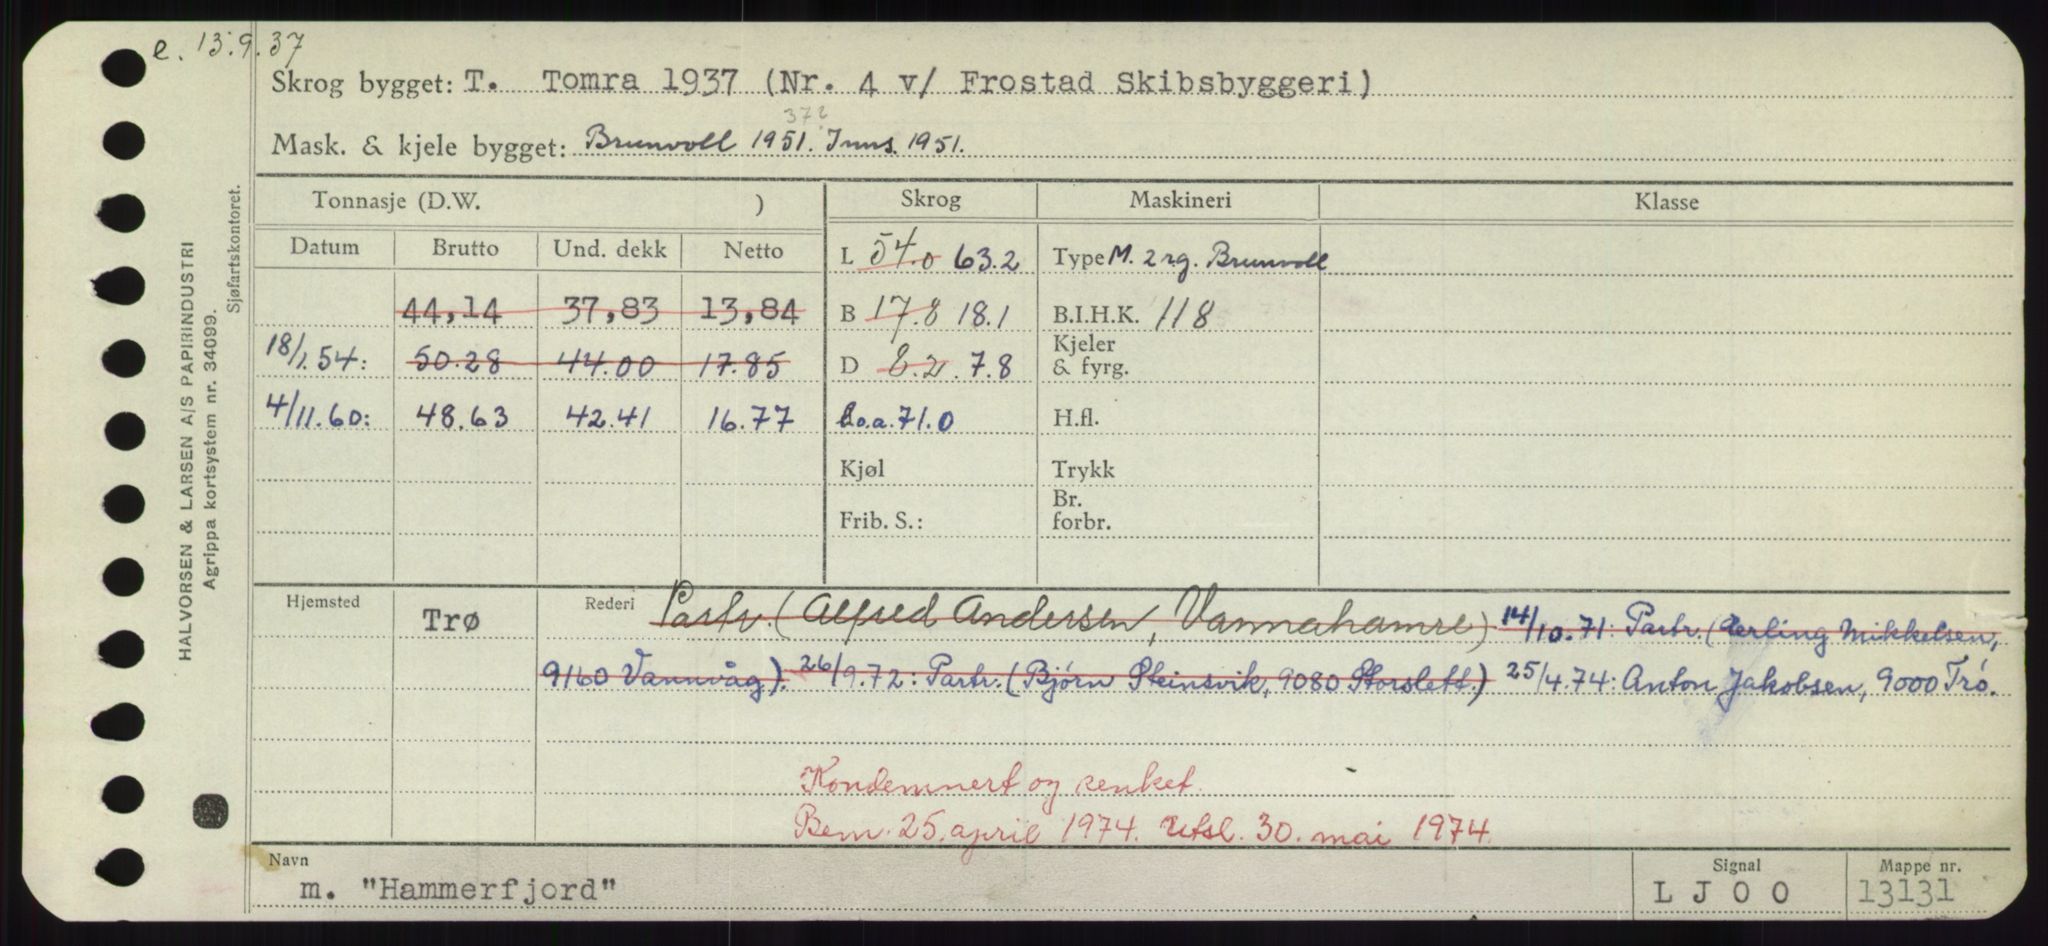 e. 13.9.37
Skrog bygget: T. Tomra 1937 (Nr. 4 v/ Frostad Skibsbyggeri)
372
Mask. & kjele bygget: Brunvoll 1951. Inns. 1951.
HALVORSEN & LARSEN A/S PAPIRINDUSTRI
Agrippa kortsystem nr. 34099.
Sjøfartskontoret.
Tonnasje (D.W. ) Skrog Maskineri Klasse
Datum Brutto Und. dekk Netto L 54.0 63.2 Type M. 2 sg. Brunvoll
44,14 37,83 13,84 B 17.8 18.1 B.I.H.K. 118
18/1.54: 50.28 44.00 17.85 D 8.2 7.8 Kjeler
& fyrg.
4/11.60: 48.63 42.41 16.77 L.o.a. 71.0 H.fl.
Kjøl Trykk
Frib. S.: Br.
forbr.
Hjemsted Trø Rederi Partr. (Alfred Andersen, Vannahamre) 14/10.71: Partr. (Erling Mikkelsen,
9160 Vannvåg). 26/9.72: Partr. (Bjørn Steinsvik, 9080 Storslett.) 25/4.74: Anton Jakobsen, 9000 Trø.
Kondemnert og senket.
Bem. 25. april 1974. Utsl. 30. mai 1974.
Navn Signal Mappe nr.
m. "Hammerfjord" L J O O 13131